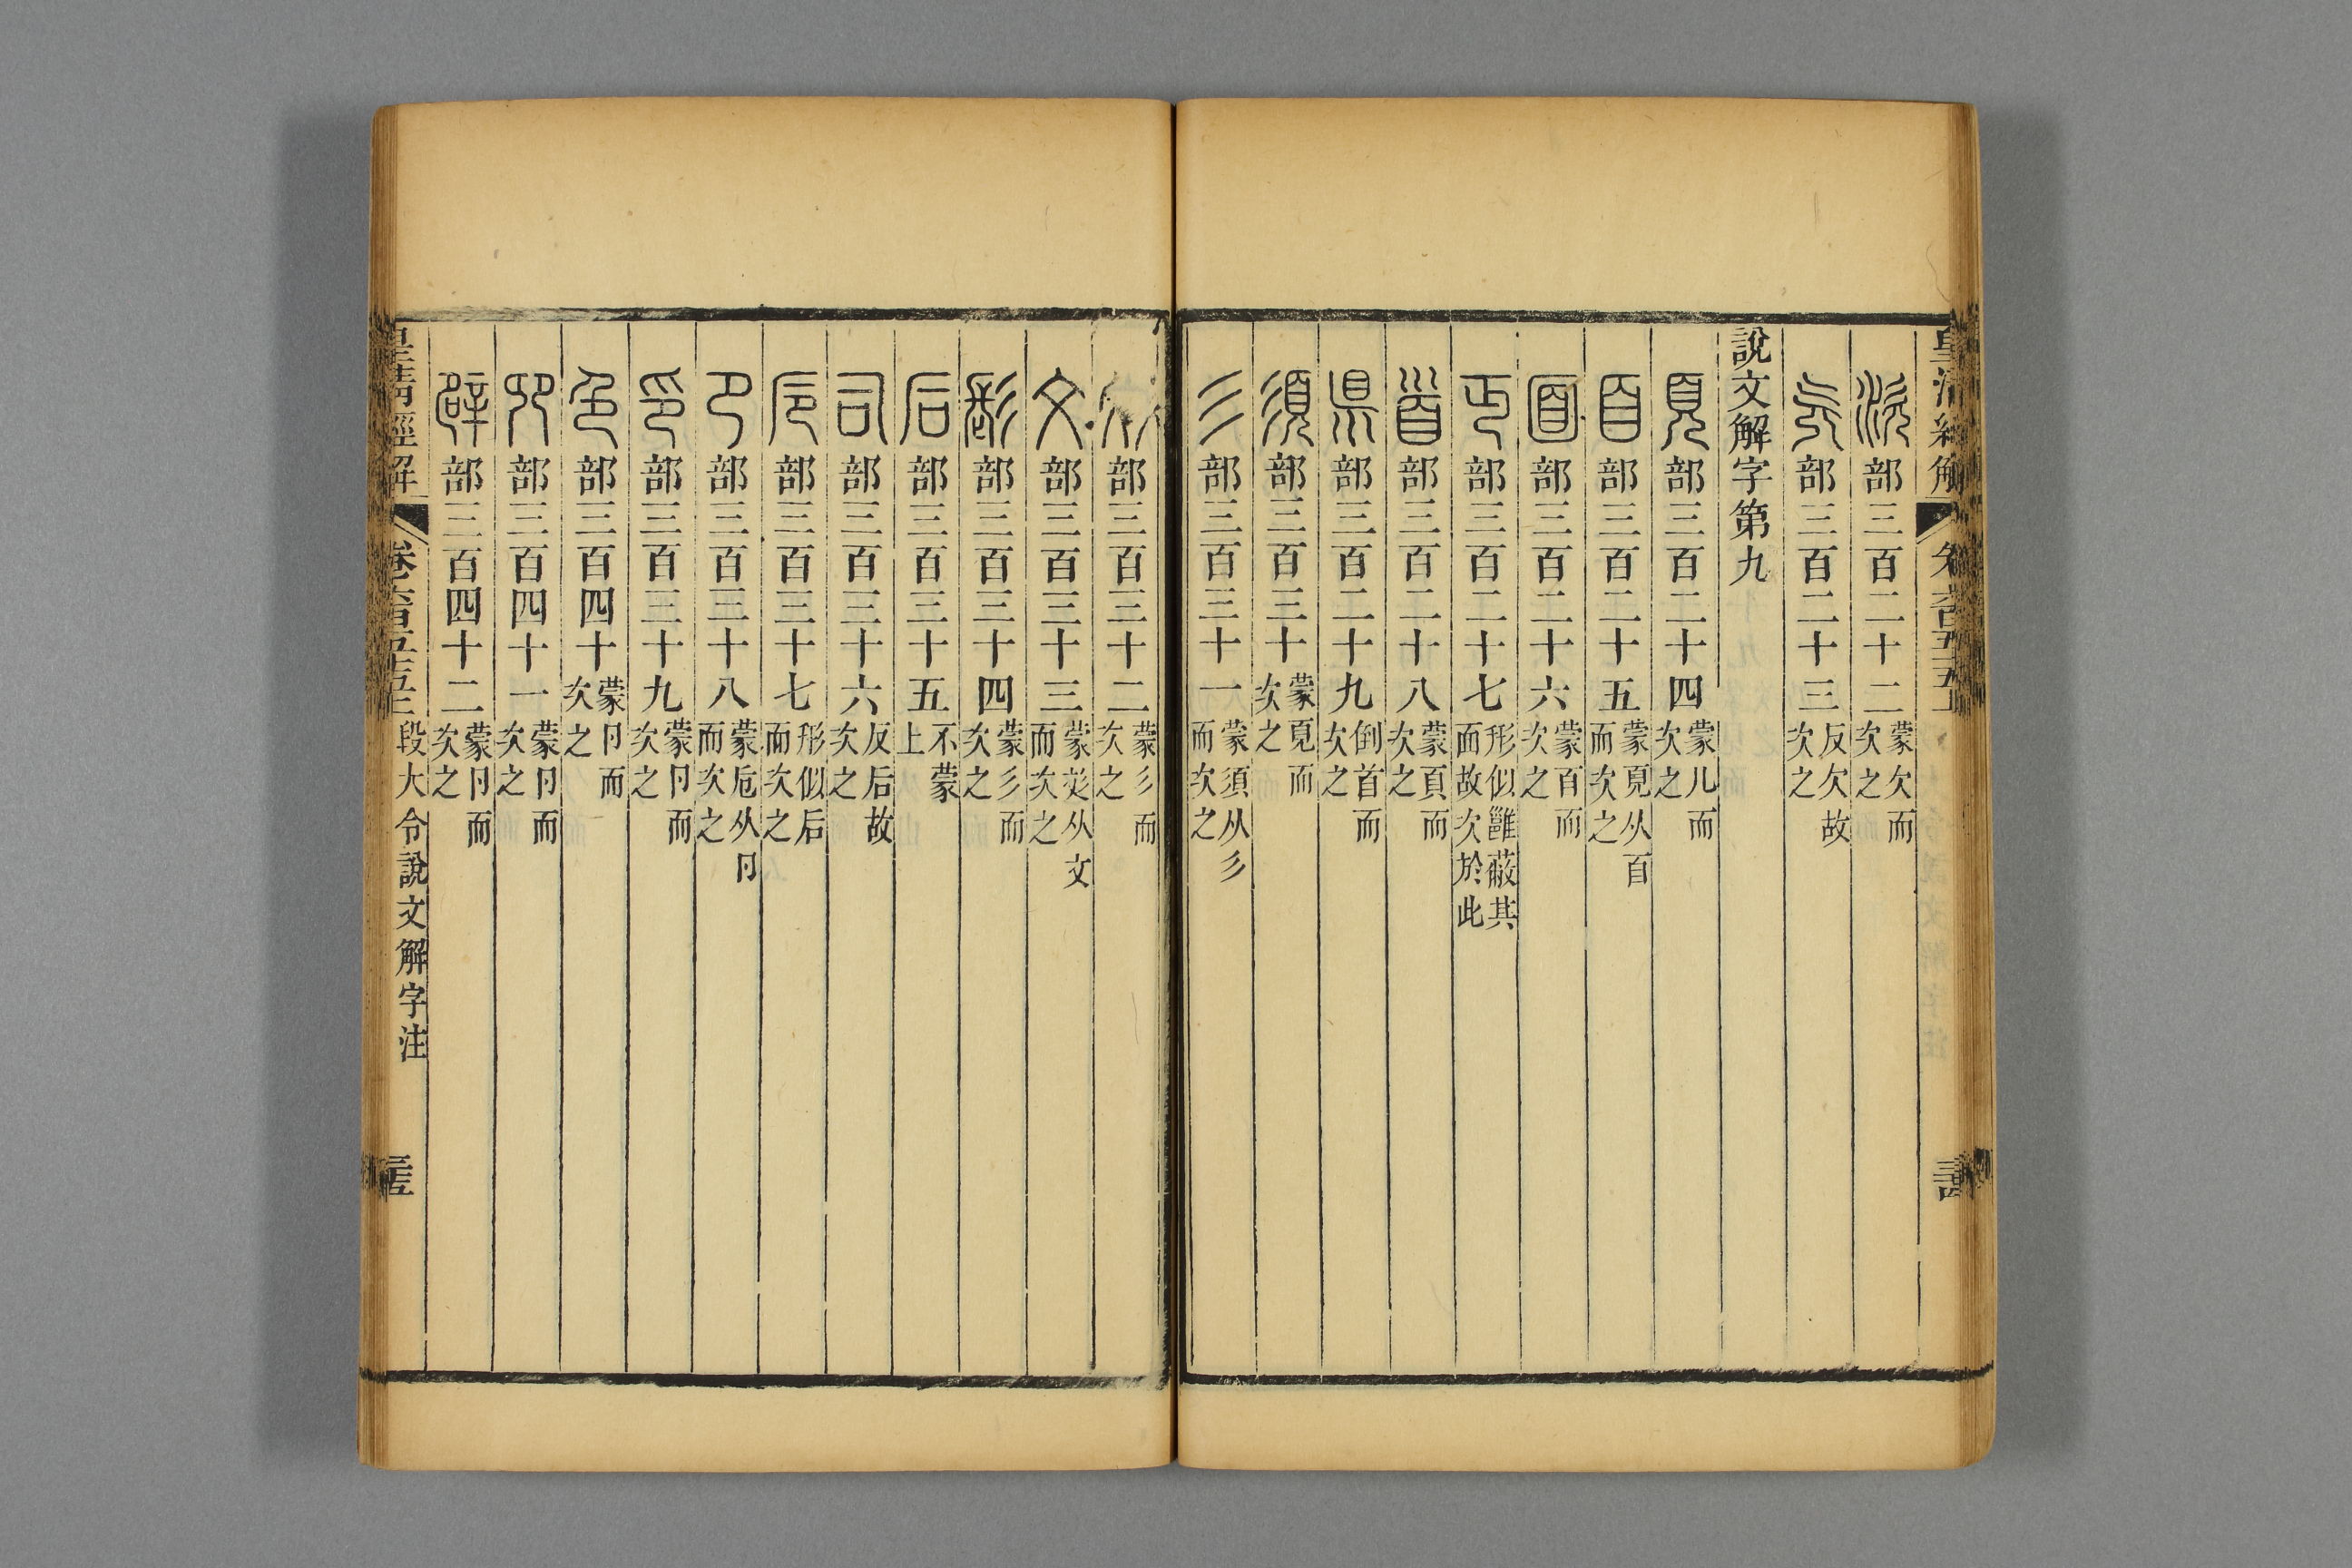 皇清經解 卷六百五十五上
㳄部三百二十二蒙欠而次之
旡部三百二十三反欠故次之
說文解字第九
頁部三百二十四蒙儿而次之
𦣻部三百二十五蒙頁从𦣻而次之
面部三百二十六蒙𦣻而次之
丏部三百二十七形似雝蔽其面故次於此
𩠐部三百二十八蒙頁而次之
𥄉部三百二十九倒首而次之
須部三百三十蒙頁而次之
彡部三百三十一蒙須从彡而次之
彣部三百三十二蒙彡而次之
文部三百三十三蒙彣从文而次之
髟部三百三十四蒙彡而次之
后部三百三十五不蒙上
司部三百三十六反后故次之
卮部三百三十七形似后而次之
卪部三百三十八蒙卮从卪而次之
印部三百三十九蒙卪而次之
色部三百四十蒙卪而次之
𠨍部三百四十一蒙卪而次之
辟部三百四十二蒙卪而次之
皇清經解 卷六百五十五上 段大令說文解字注 三十五